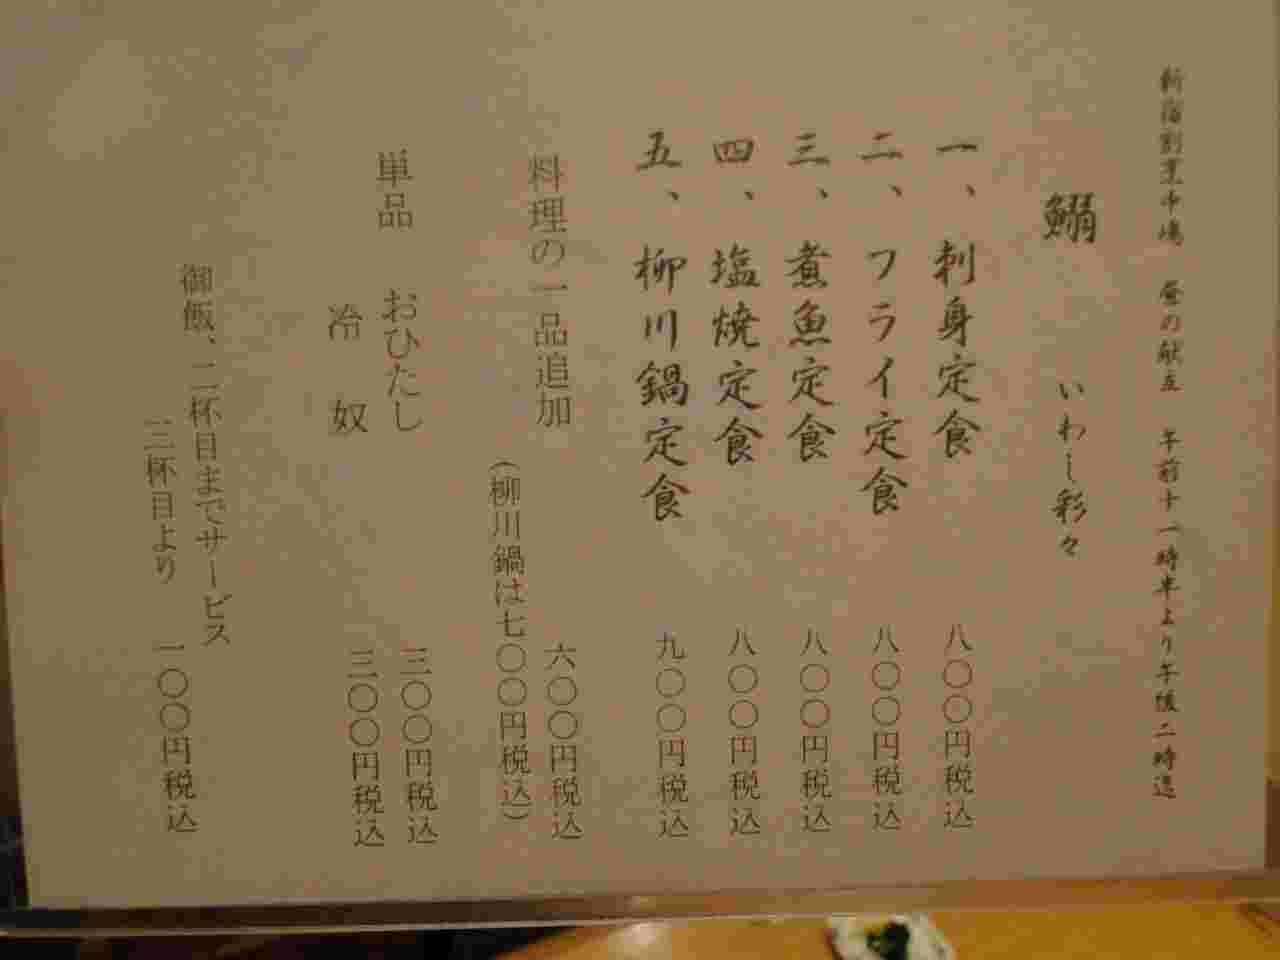 新宿割烹中嶋 昼の献立 午前十一時半より午後二時迄
鰯 いわし彩々
一、刺身定食 八〇〇円税込
二、フライ定食 八〇〇円税込
三、煮魚定食 八〇〇円税込
四、塩焼定食 八〇〇円税込
五、柳川鍋定食 九〇〇円税込
料理の一品追加 六〇〇円税込
(柳川鍋は七〇〇円税込)
単品 おひたし 三〇〇円税込
冷奴 三〇〇円税込
御飯、二杯目までサービス
三杯目より 一〇〇円税込